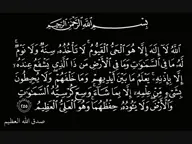 بِسْمِ اللَّهِ الرَّحْمَٰنِ الرَّحِيمِ
اللَّهُ لَا إِلَٰهَ إِلَّا هُوَ الْحَيُّ الْقَيُّومُ لَا تَأْخُذُهُ سِنَةٌ وَلَا نَوْمٌ
لَّهُ مَا فِي السَّمَاوَاتِ وَمَا فِي الْأَرْضِ مَن ذَا الَّذِي يَشْفَعُ عِندَهُ
إِلَّا بِإِذْنِهِ يَعْلَمُ مَا بَيْنَ أَيْدِيهِمْ وَمَا خَلْفَهُمْ وَلَا يُحِيطُونَ
بِشَيْءٍ مِّنْ عِلْمِهِ إِلَّا بِمَا شَاءَ وَسِعَ كُرْسِيُّهُ السَّمَاوَاتِ
وَالْأَرْضَ وَلَا يَئُودُهُ حِفْظُهُمَا وَهُوَ الْعَلِيُّ الْعَظِيمُ ٢٥٥
صدق الله العظيم